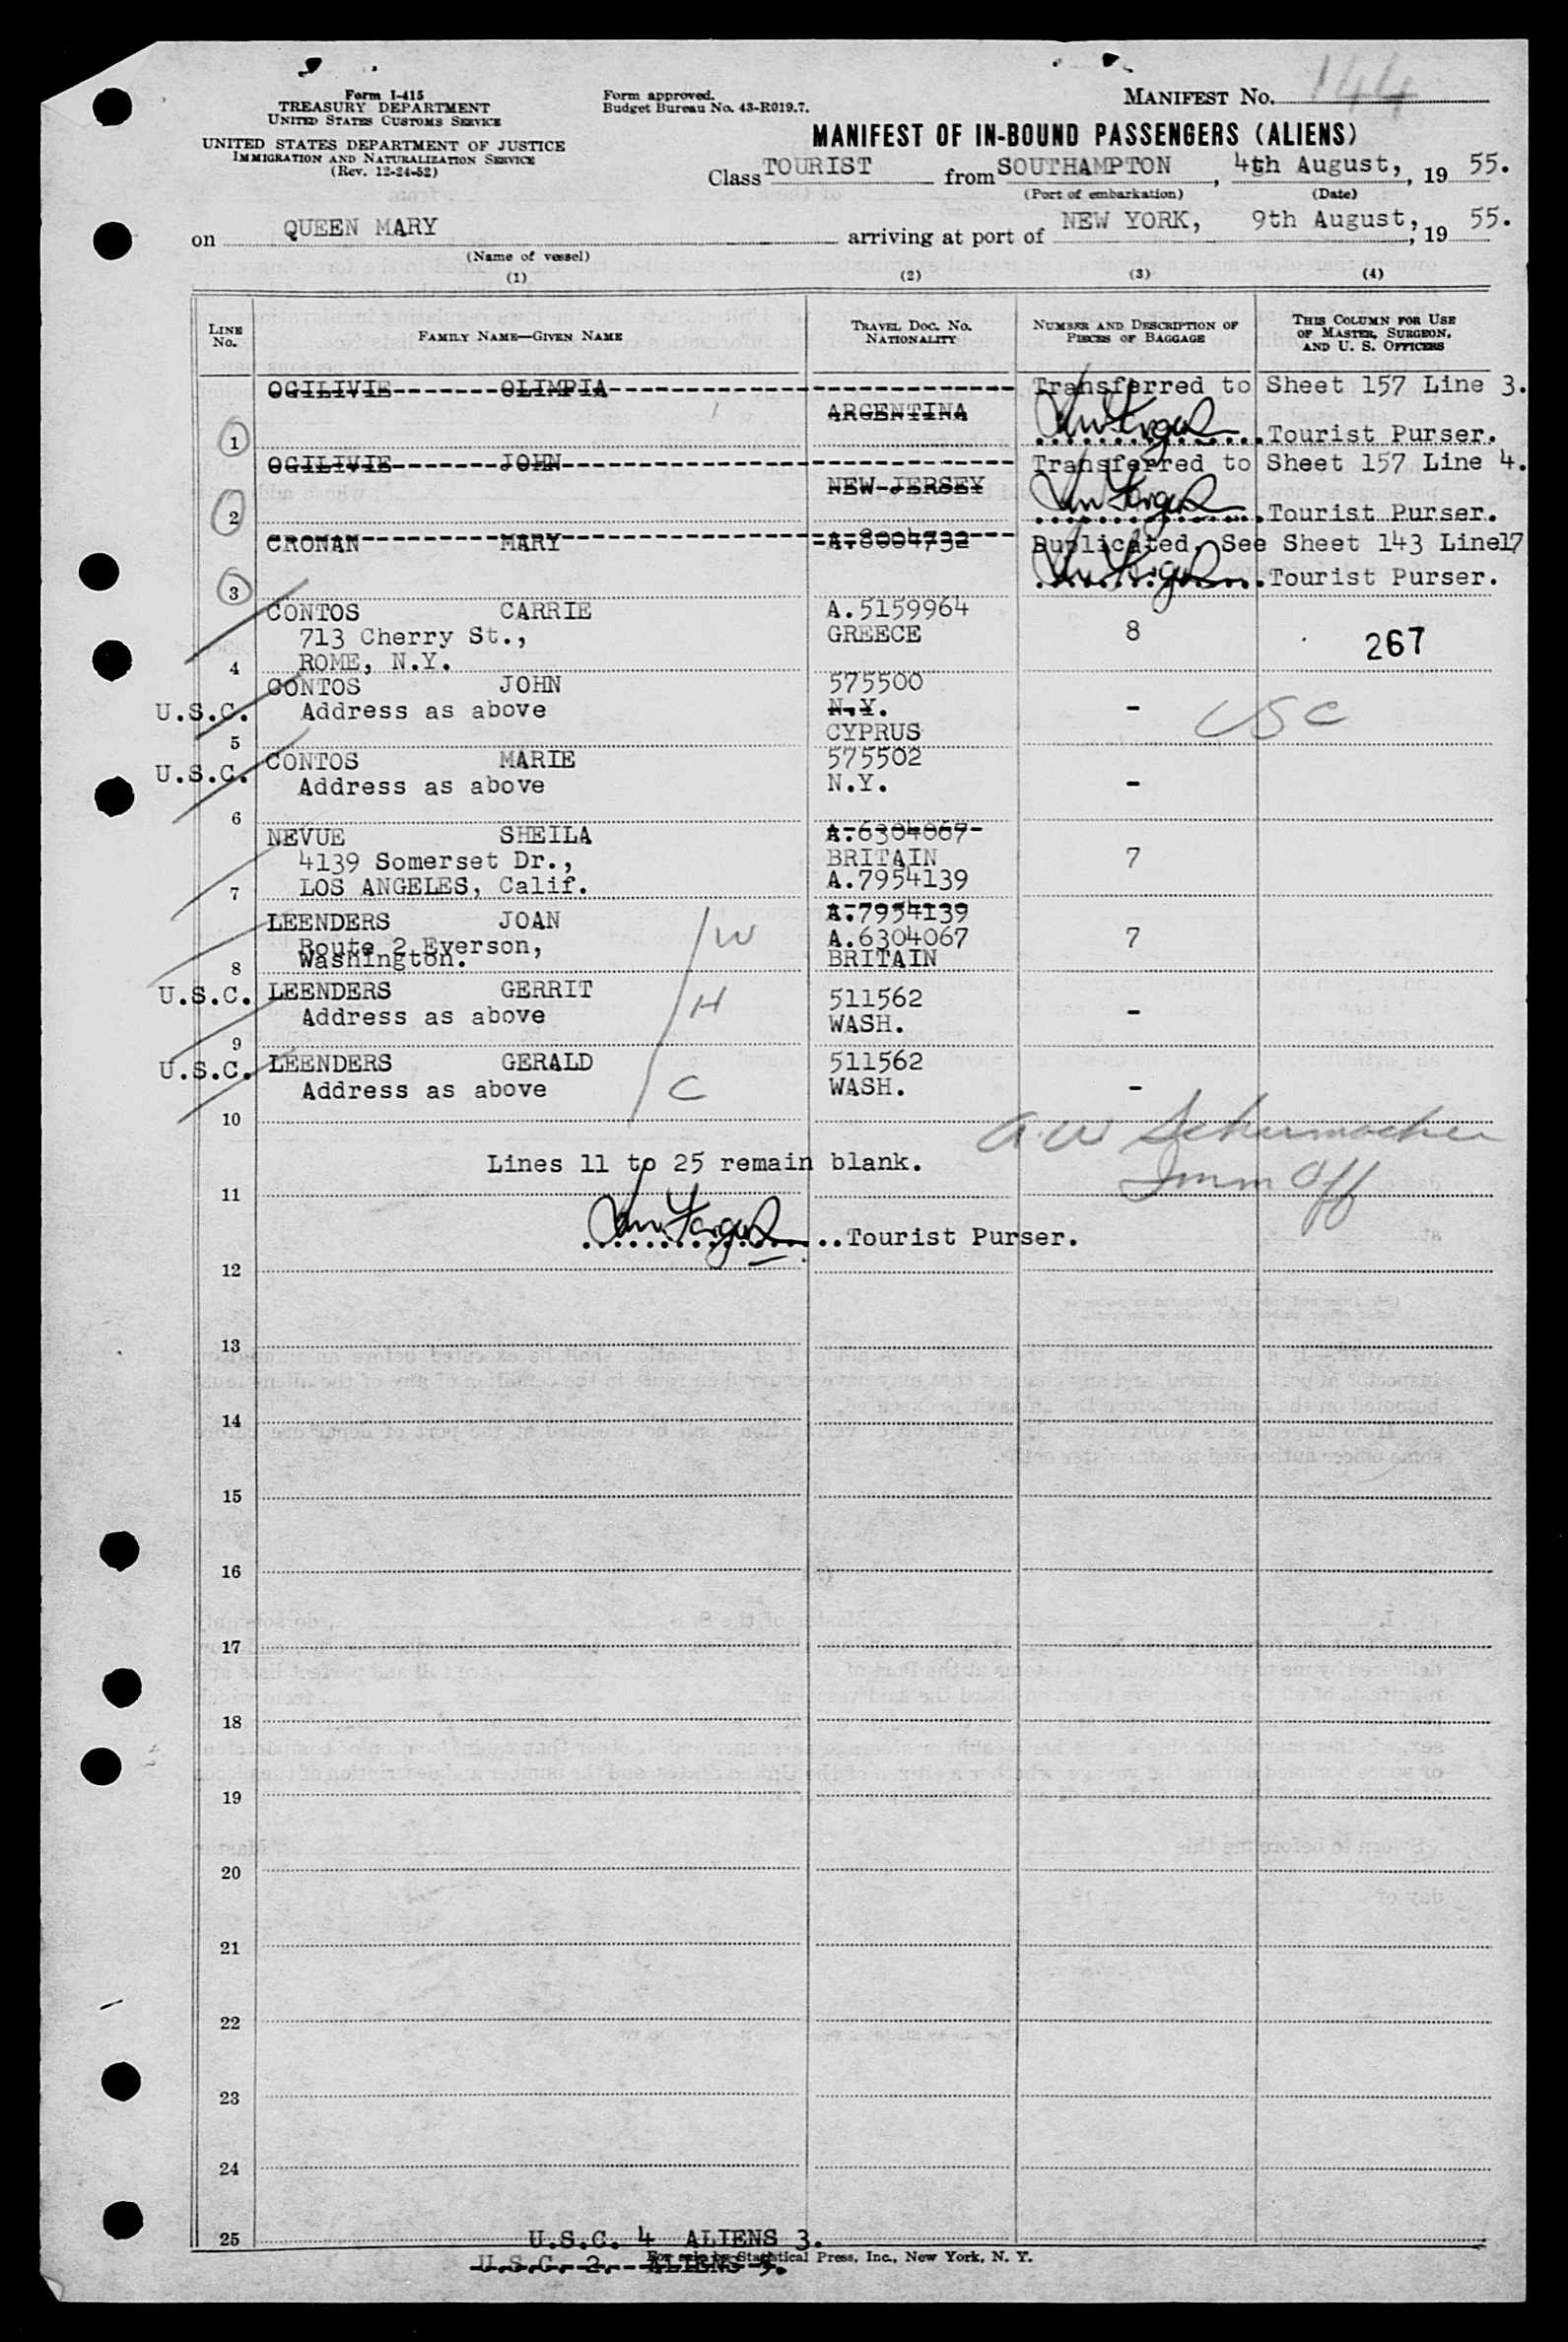 Form I-415
TREASURY DEPARTMENT
UNITED STATES CUSTOMS SERVICE
UNITED STATES DEPARTMENT OF JUSTICE
IMMIGRATION AND NATURALIZATION SERVICE
(Rev. 12-24-52)
Form approved.
Budget Bureau No. 43-R019.7.
MANIFEST NO. 144
MANIFEST OF IN-BOUND PASSENGERS (ALIENS)
Class TOURIST from SOUTHAMPTON, 4th August, , 19 55.
(Port of embarkation) (Date)
on QUEEN MARY arriving at port of NEW YORK, 9th August, , 19 55.
(Name of vessel)
(1) (2) (3) (4)
LINE NO. FAMILY NAME—GIVEN NAME TRAVEL DOC. NO. NATIONALITY NUMBER AND DESCRIPTION OF PIECES OF BAGGAGE THIS COLUMN FOR USE OF MASTER, SURGEON, AND U. S. OFFICERS
OGILIVIE OLIMPIA Transferred to Sheet 157 Line 3.
ARGENTINA
1 Tourist Purser.
OGILIVIE JOHN Transferred to Sheet 157 Line 4.
NEW JERSEY
2 Tourist Purser.
CRONAN MARY A.8004732 Duplicated. See Sheet 143 Line17
3 Tourist Purser.
CONTOS CARRIE A.5159964
713 Cherry St., GREECE 8 267
4 ROME, N.Y.
CONTOS JOHN 575500
U.S.C. Address as above N.Y. - USC
5 CYPRUS
CONTOS MARIE 575502
U.S.C. Address as above N.Y. -
6
NEVUE SHEILA A.6304067
4139 Somerset Dr., BRITAIN 7
7 LOS ANGELES, Calif. A.7954139
LEENDERS JOAN A.7954139
Route 2 Everson, W A.6304067 7
8 Washington. BRITAIN
U.S.C. LEENDERS GERRIT H 511562
Address as above WASH. -
9
U.S.C. LEENDERS GERALD 511562
Address as above C WASH. -
10
A.W Schumacher
Lines 11 to 25 remain blank.
Imm Off
11
Tourist Purser.
12
13
14
15
16
17
18
19
20
21
22
23
24
25 U.S.C. 4 ALIENS 3.
For sale by Statistical Press, Inc., New York, N. Y.
U.S.C. 2. ALIENS 5.